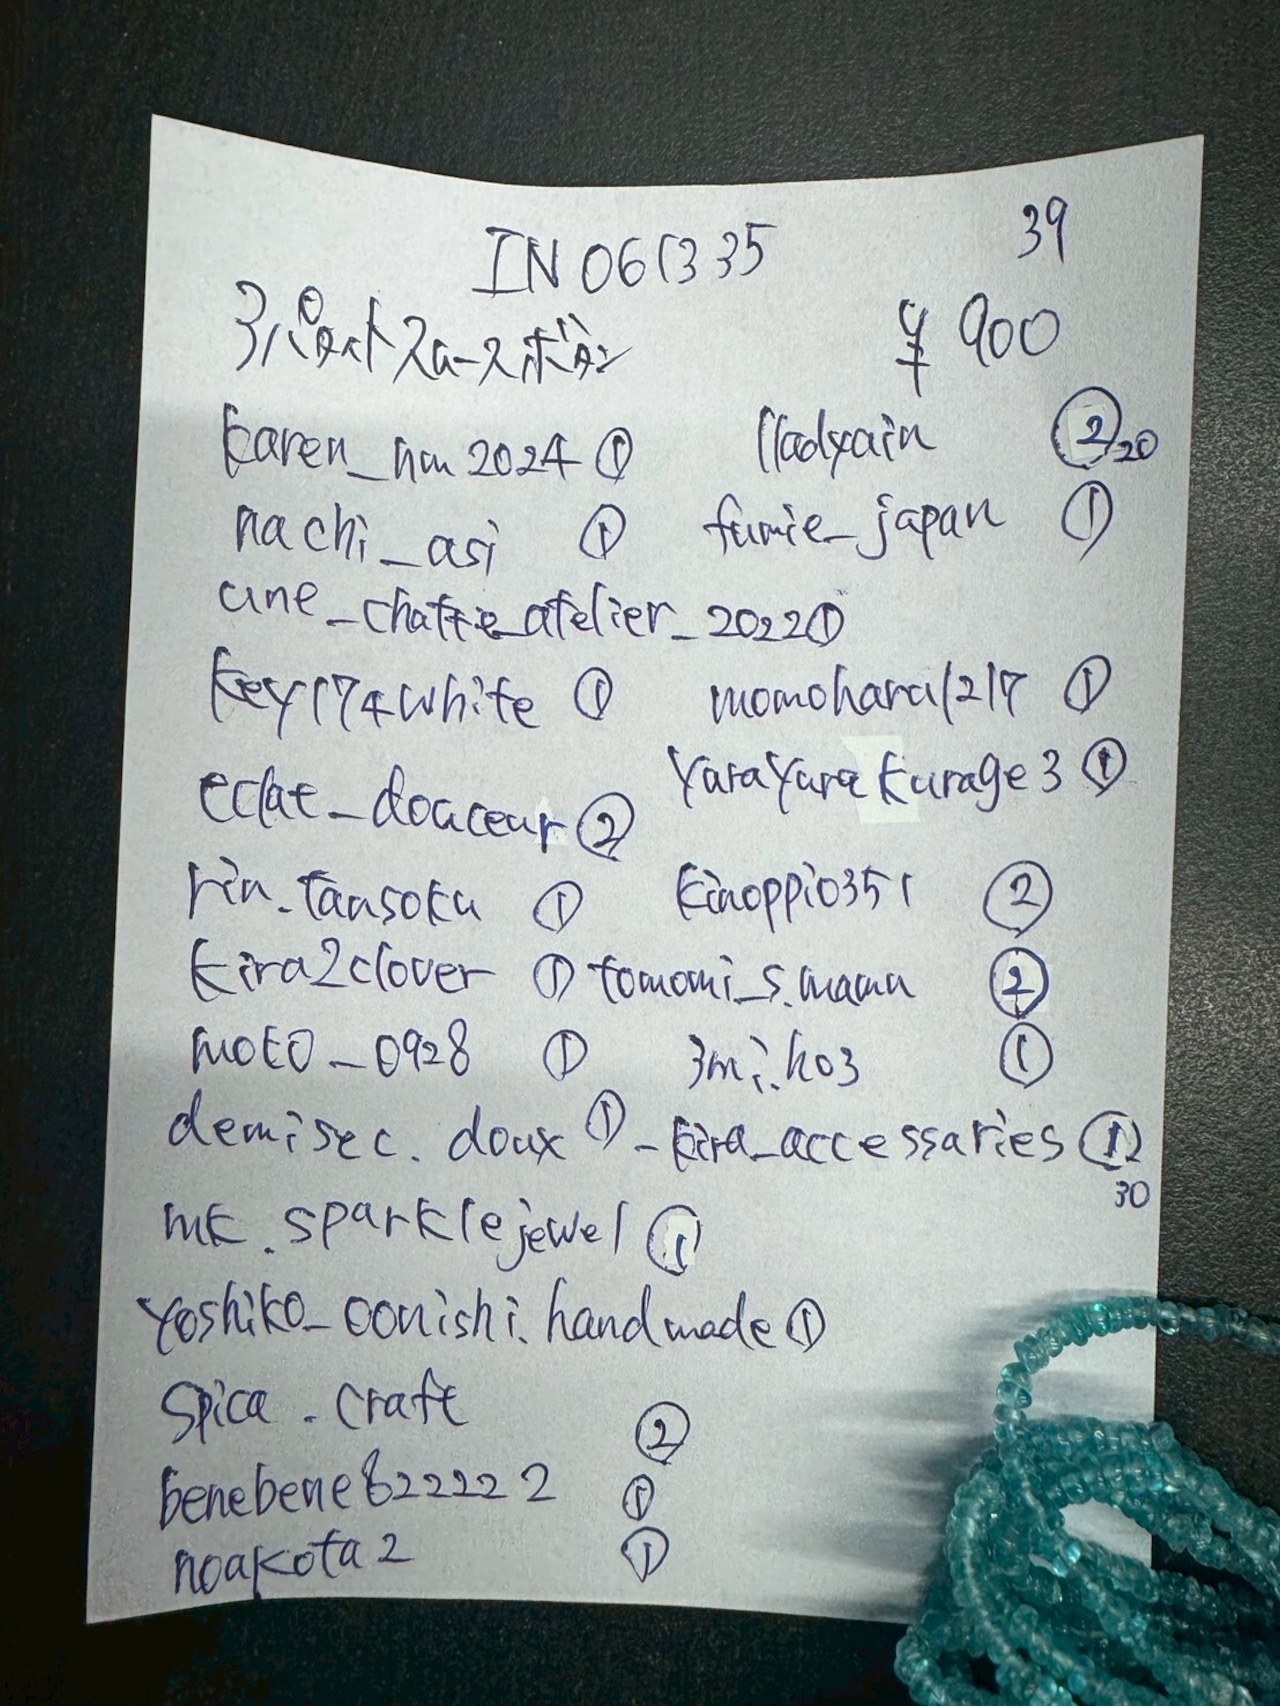 IN061335 39
アパタイトスムースボタン ¥900
karen_nm2024 ① lladyxain ② 20
nachi_asi ① fumie_japan ①
une_chatte_atelier_2022 ①
key174white ① momohara1217 ①
eclat_douceur ② YaraYurakurage3 ①
rin.tansoku ① kinoppio351 ②
kira2clover ① tomomi_s.mama ②
moto_0928 ① 3mi.ho3 ①
demisec.doux ① _kira_accessaries ①
30
mk.sparklejewel ①
yoshiko_oonishi.handmade ①
spica.craft ②
benebene622222 ①
noakota2 ①